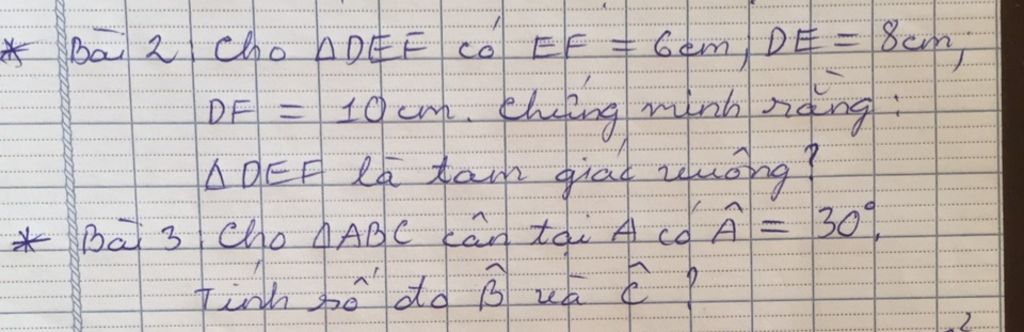 * Bài 2, Cho ΔDEF có EF = 6cm, DE = 8cm,
DF = 10cm. Chứng minh rằng:
ΔDEF là tam giác vuông?
* Bài 3, Cho ΔABC cân tại A có Â = 30°.
Tính số đo B̂ và Ĉ?
2